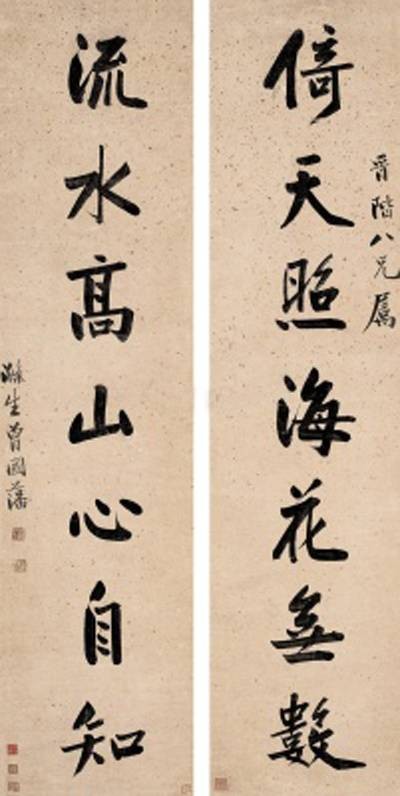 晋階八兄属
倚天照海花無數
流水高山心自知
滌生曾國藩